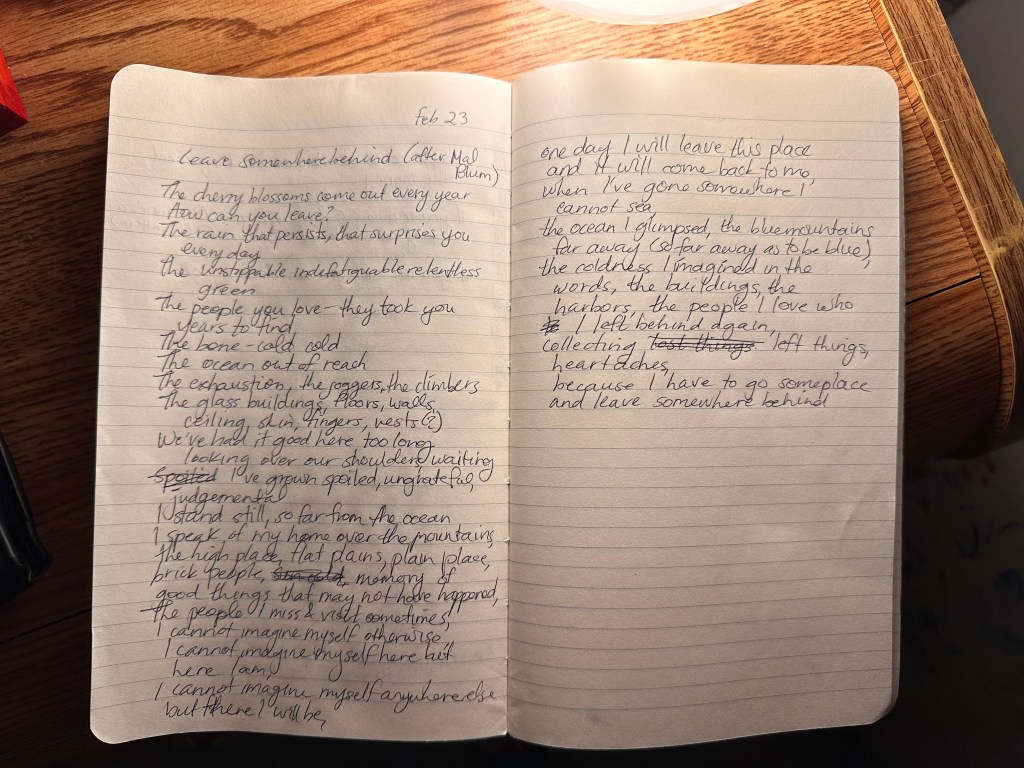 Feb 23
Leave somewhere behind (after Mal
Blum)
The cherry blossoms come out every year
How can you leave?
The rain that persists, that surprises you
every day
The unstoppable indefatiguable relentless
green
The people you love – they took you
years to find
The bone-cold cold
The ocean out of reach
The exhaustion, the joggers, the climbers
The glass buildings, floors, walls,
ceiling, skin, fingers, vests(?)
We've had it good here too long
looking over our shoulders waiting
Spoiled I've grown spoiled, ungrateful,
judgemental
I stand still, so far from the ocean
I speak of my home over the mountains,
the high place, flat plains, plain place,
brick people, memory of
good things that may not have happened,
the people I miss & visit sometimes,
I cannot imagine myself otherwise,
I cannot imagine myself here but
here I am,
I cannot imagine myself anywhere else
but there I will be,
one day I will leave this place
and it will come back to me,
when I've gone somewhere I
cannot sea
the ocean I glimpsed, the blue mountains
far away (so far away as to be blue),
the coldness I imagined in the
words, the buildings, the
harbors, the people I love who
I left behind again,
collecting lost things left things,
heartaches,
because I have to go someplace
and leave somewhere behind